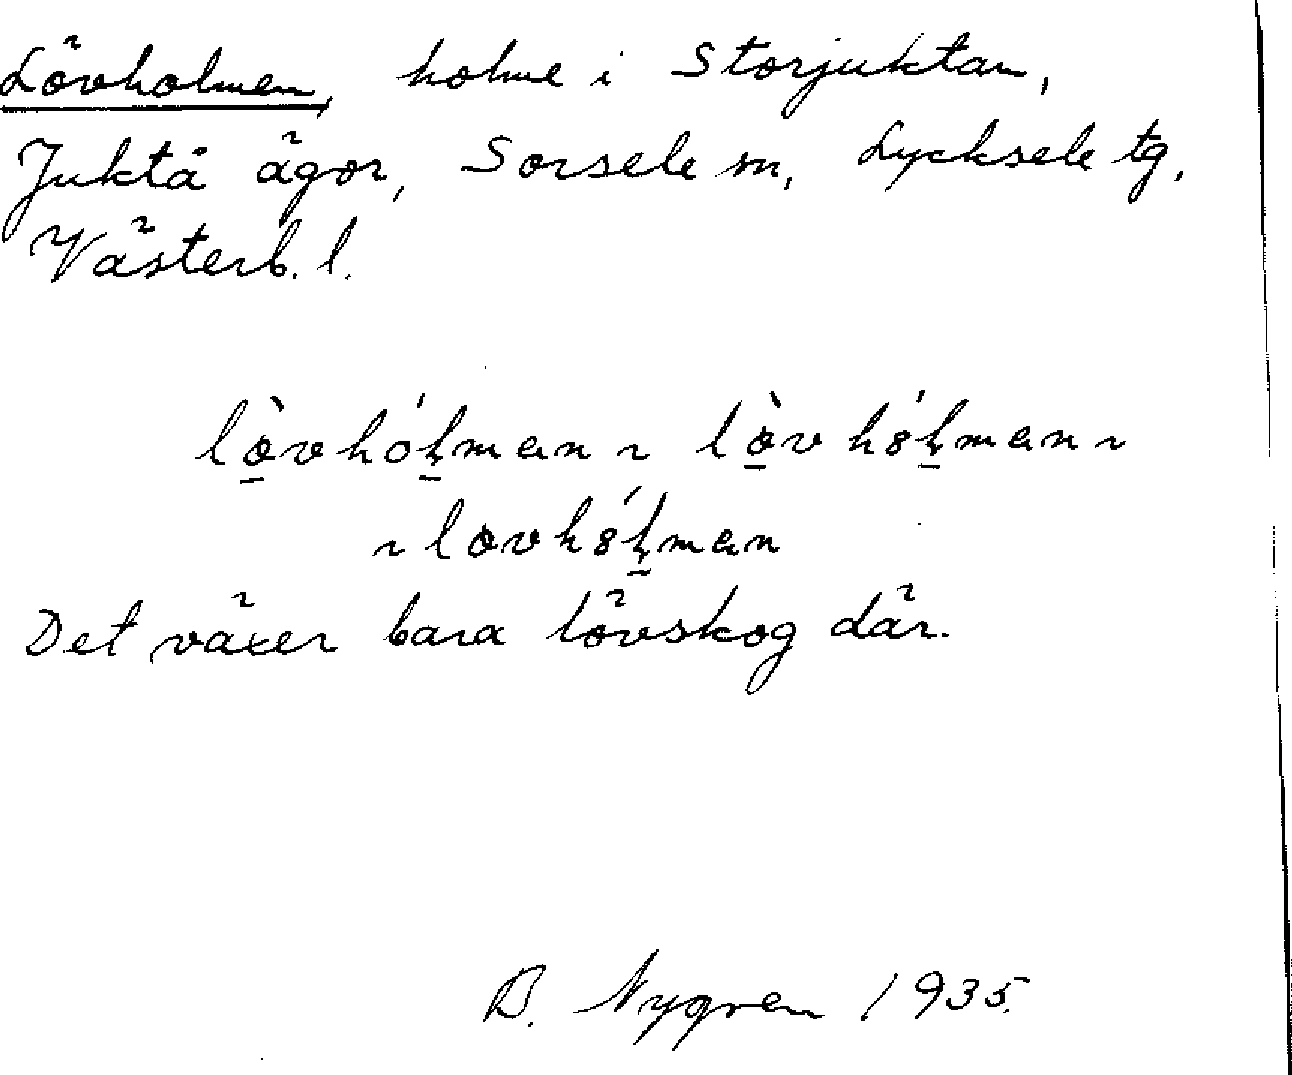 Lövholmen, holme i Storjuktan,
Juktå ägor, Sorsele sn, Lycksele tg,
Västerb. l.
Det växer bara lövskog där.
B. Nygren 1935.